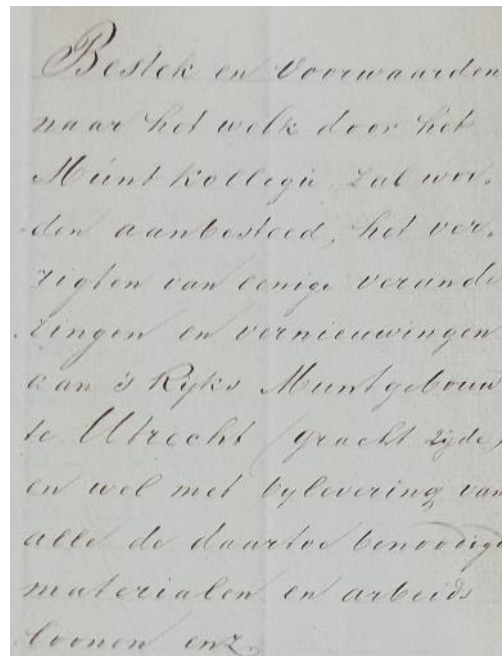 Bestek en Voorwaarden
naar het welk door het
Munt kollegie, zal wor„
den aanbesteed, het ver„
rigten van eenige verande
ringen en vernieuwingen
aan 's Rijks Muntgebouw
te Utrecht (gracht zijde)
en wel met bylevering van
alle de daartoe benoodigde
materialen en arbeids
loonen enz.